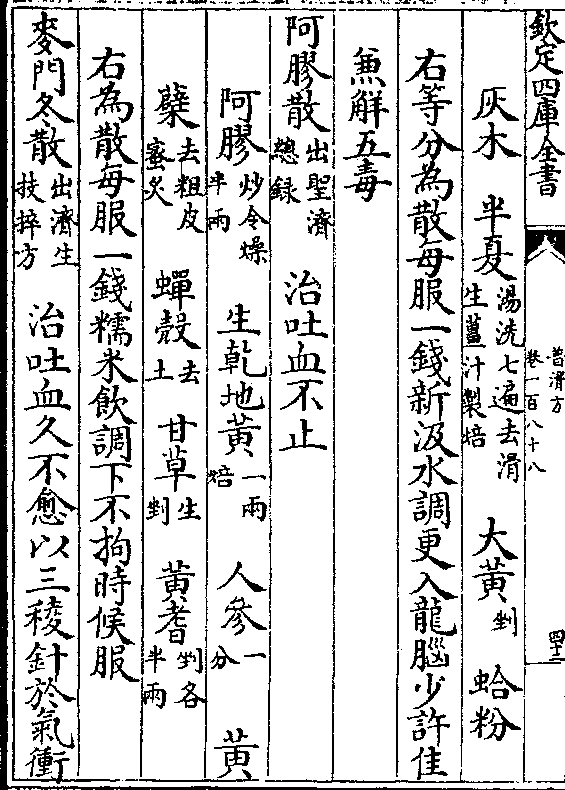 欽定四庫全書
普濟方
卷一百八十八
四十二
灰木 半夏湯洗七遍去滑生薑汁製焙 大黃剉 蛤粉
右等分為散每服一錢新汲水調更入龍腦少許佳
兼解五毒
阿膠散出聖濟總錄 治吐血不止
阿膠炒令燥半兩 生乾地黃一兩焙 人參一分 黃
蘗去粗皮蜜炙 蟬殼去土 甘草生剉 黃耆剉各半兩
右為散每服一錢糯米飲調下不拘時候服
麥門冬散出濟生拔捽方 治吐血久不愈以三稜針於氣衝